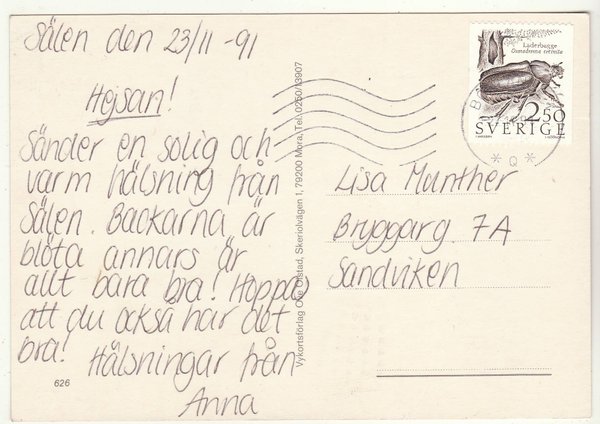 Sälen den 23/11 -91
Hejsan!
Sänder en solig och
varm hälsning från
Sälen. Backarna är
blöta annars är
allt bara bra! Hoppas
att du också har det
bra! Hälsningar från
Anna
626
Vykortsförlag Olle Olstad, Skeriolvägen 1, 79200 Mora, Tel. 0250/13907
Läderbagge
Osmoderma eremita
2.50
SVERIGE
Lisa Munther
Bryggarg. 7A
Sandviken